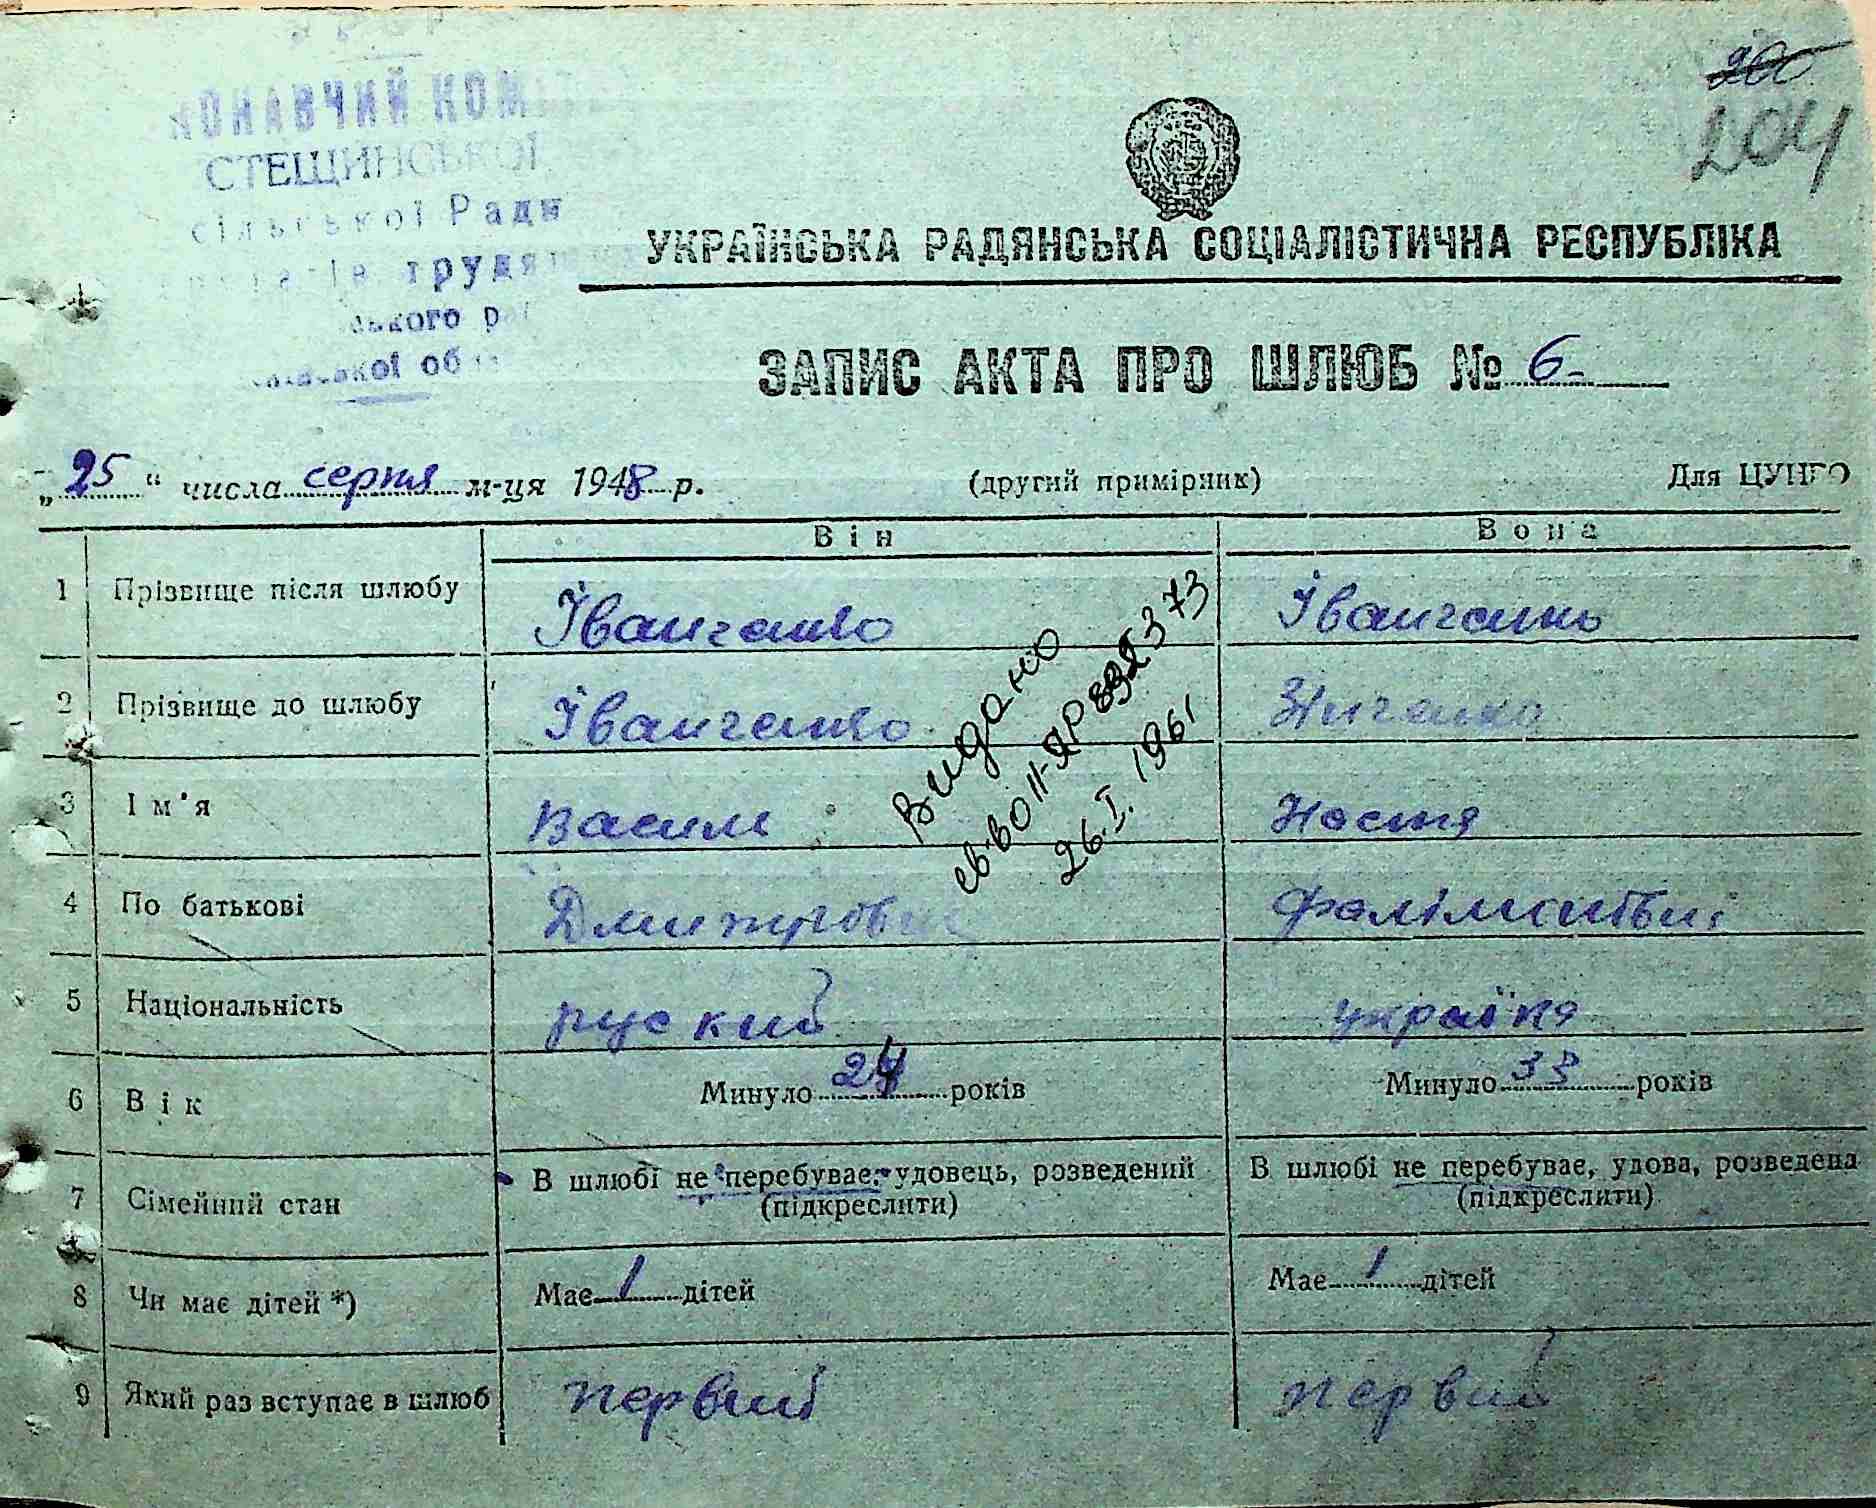 УРСР
КОНАВЧИЙ КОМІ
СТЕЩИНСЬКОЇ
сільської Ради
трудя
ського ра
ської об
200
204
УКРАЇНСЬКА РАДЯНСЬКА СОЦІАЛІСТИЧНА РЕСПУБЛІКА
ЗАПИС АКТА ПРО ШЛЮБ № 6-
„25“ числа серпня м-ця 1948 р. (другий примірник) Для ЦУНГО
Він Вона
1 Прізвище після шлюбу Іванченко Іванченко
2 Прізвище до шлюбу Іванченко
3 Ім'я Василь Настя
4 По батькові Дмитрович
5 Національність руский україна
6 Вік Минуло 24 років Минуло 33 років
7 Сімейний стан В шлюбі не перебуває, удовець, розведений В шлюбі не перебуває, удова, розведена
(підкреслити) (підкреслити)
8 Чи має дітей *) Має 1 дітей Має 1 дітей
9 Який раз вступає в шлюб первий первий
Видано
св-во II-ЯР 892373
26.I.1961